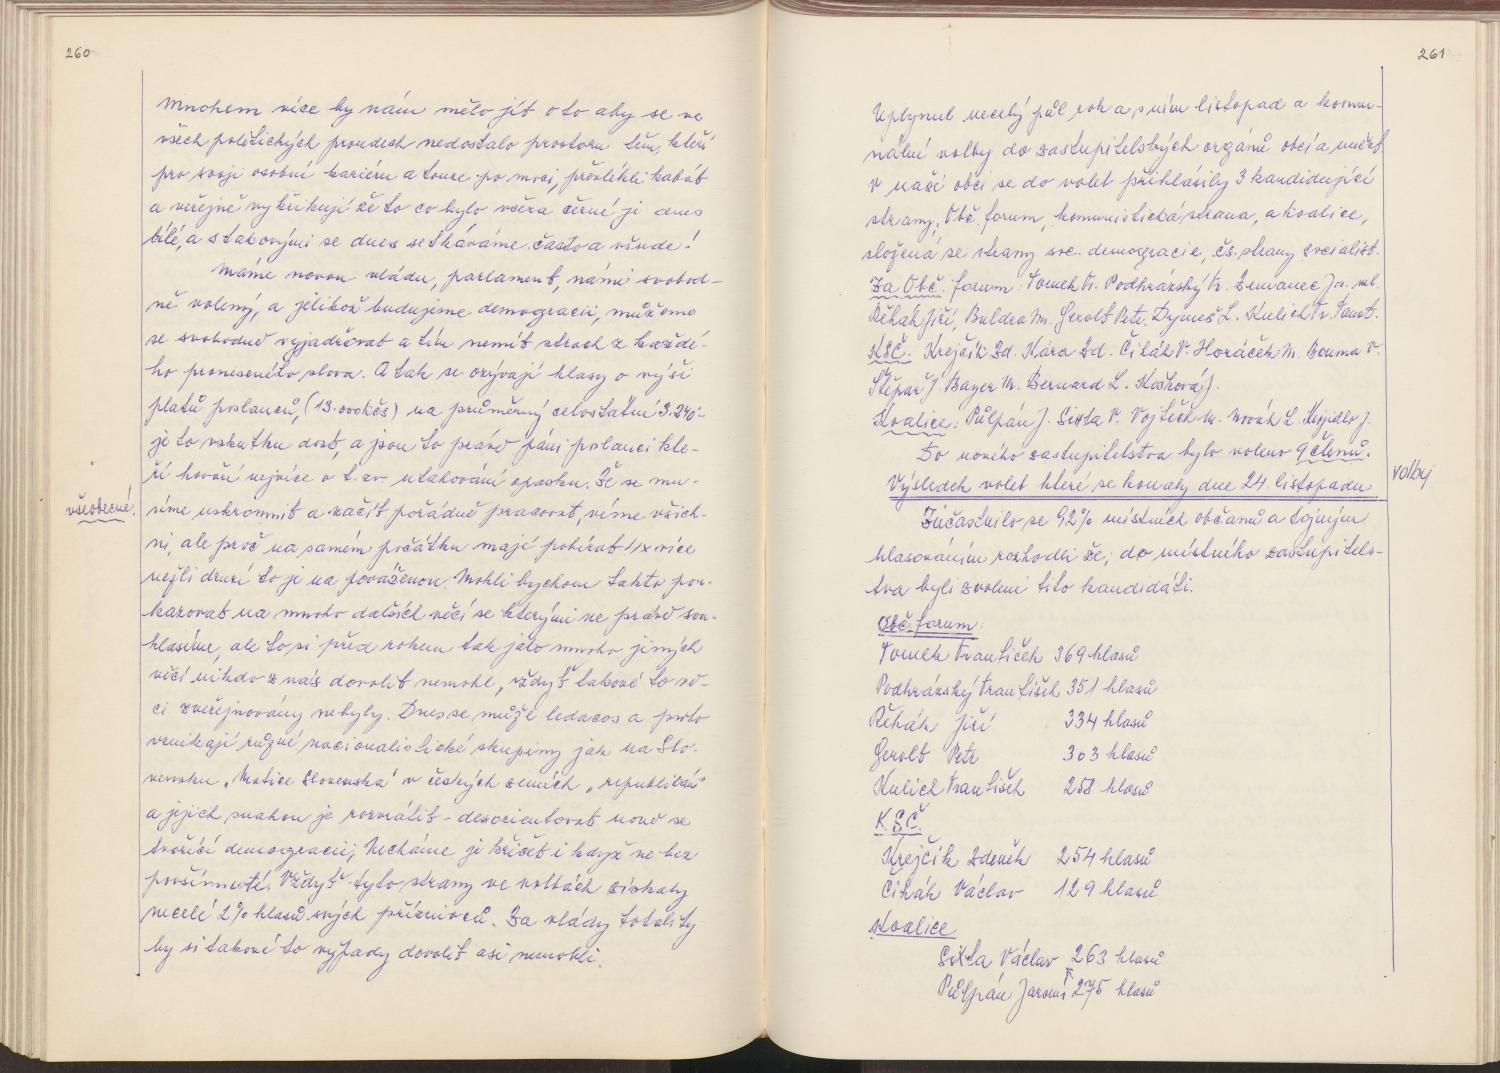 260
Mnohem více by nám mělo jít o to aby se ve
všech politických proudech nedostalo prostoru těm, kteří
pro svoji osobní kariéru a touze po moci, převlékli kabát
a veřejně vykřikují že to co bylo včera černé je dnes
bílé, a s takovými se dnes setkáváme často a všude!
Máme novou vládu, parlament, námi svobod-
ně volený, a jelikož budujeme demogracii, můžeme
se svobodně vyjadřovat a tím nemít strach z každé-
ho proneseného slova. A tak se ozývají hlasy o výši
platů poslanců, (13.000 kčs) na průměrný celostátní 3.240-
je to vskutku dost, a jsou to právě páni poslanci kte-
ří hovoří nejvíce o t.zv. utahování opasku. Že se mu-
všeobecné.
síme uskromnit a začít pořádně pracovat, víme všich-
ni, ale proč na samém počátku mají pobírat 4x více
nežli druzí to je na pováženou. Mohli bychom takto pou-
kazovat na mnoho dalších věcí se kterými ne právě sou-
hlasíme, ale to si před rokem tak jako mnoho jiných
věcí nikdo z nás dovolit nemohl, vždyť takové to vě-
ci zveřejnovány nebyly. Dnes se může ledacos a proto
vznikají různé nacionalistické skupiny jak na Slo-
vensku „Matice Slovenska" v českých zemích „republikán"
a jejich snahou je rozvrátit - desorientovat nově se
tvořící demogracii, Necháme je křičet i když ne bez
povšimnutí. Vždyť tyto strany ve volbách získaly
necelé 2% hlasů svých příznivců. Za vlády totality
by si takové to výpady dovolit asi nemohli.
261
Uplynul necelý půl rok a s ním listopad a komu-
nální volby do zastupitelských orgánů obcí a měst
V naší obci se do voleb přihlásily 3 kandidující
strany, Obč. forum, komunistická strana, a koalice,
složená se strany soc. demogracie, čs. strany socialist.
Za Obč. forum: Tomek Fr. Podhrázský Fr. Zemanec Jos. ml.
Řehák Jiří, Buldra M. Gerolt Petr. Dymeš L. Kulich Fr. Faust.
KSČ. Krejčík Zd. Kára Zd. Cihák V. Horáček M. Bouma V.
Štěpař J. Bayer M. Bernard L. Košková J.
Koalice: Půlpán J. Sixta V. Vojtěch M. Novák L. J.
Do nového zastupitelstva bylo voleno 9 členů.
volby
Výsledek voleb které se konaly dne 24 listopadu
Zúčastnilo se 92% místních občanů a tajným
hlasováním rozhodli že; do místního zastupitels-
tva byli zvoleni tito kandidáti.
Obč. forum:
Tomek František 369 hlasů
Podhrázský František 351 hlasů
Řehák Jiří 334 hlasů
Gerolt Petr 303 hlasů
Kulich František 258 hlasů
KSČ.
Krejčík Zdeněk 254 hlasů
Cihák Václav 129 hlasů
Koalice
Sixta Václav 263 hlasů
Půlpán Jaromí 275 hlasů